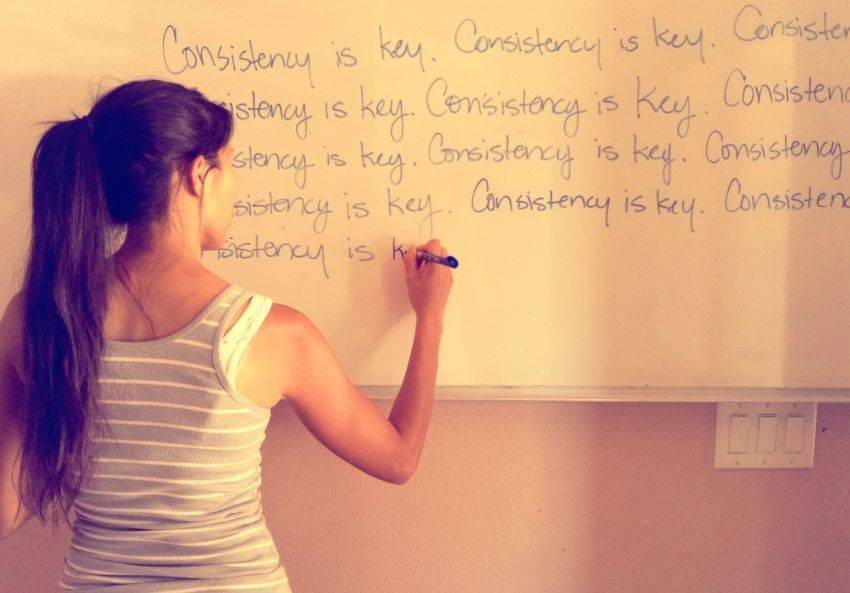 Consistency is key. Consistency is key. Consister
istency is key. Consistency is Key. Consistenc
stency is key. Consistency is key. Consistency
sistency is key. Consistency is key. Consistenc
nsistency is k